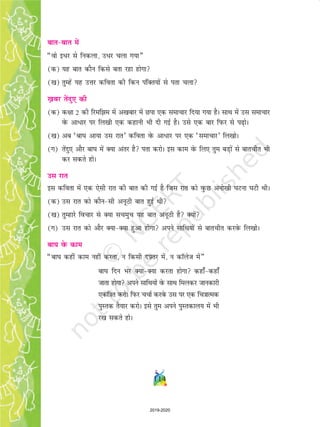 बात-बात में
"वो इधर से निकला, उधर चला गया"
(क) यह बात कौन किसे बता रहा होगा?
(ख) तुम्हें यह उत्तर कविता की किन पंक्तियों से पता चला?
खबर तेंदुए की
(क) कक्षा 2 की रिमझिम में अखबार में छपा एक समाचार दिया गया है। साथ में उस समाचार
के आधार पर लिखी एक कहानी भी दी गई है। उसे एक बार फिर से पढ़ो।
(ख) अब 'बाघ आया उस रात' कविता के आधार पर एक 'समाचार' लिखो।
(ग) तेंदुए और बाघ में क्या अंतर है? पता करो। इस काम के लिए तुम बड़ों से बातचीत भी
कर सकते हो।
उस रात
इस कविता में एक ऐसी रात की बात की गई है जिस रात को कुछ अनोखी घटना घटी थी।
(क) उस रात को कौन-सी अनूठी बात हुई थी?
(ख) तुम्हारे विचार से क्या सचमुच यह बात अनूठी है? क्यों?
(ग) उस रात को और क्या-क्या हुआ होगा? अपने साथियों से बातचीत करके लिखो।
बाघ के काम
"बाघ कहीं काम नहीं करता, न किसी दफ़्तर में, न कॉलेज में"
बाघ दिन भर क्या-क्या करता होगा? कहाँ-कहाँ
जाता होगा? अपने साथियों के साथ मिलकर जानकारी
एकत्रित करो। फिर चर्चा करके उस पर एक चित्रात्मक
पुस्तक तैयार करो। इसे तुम अपने पुस्तकालय में भी
रख सकते हो।
© NCERT
not to be republished
2019-2020